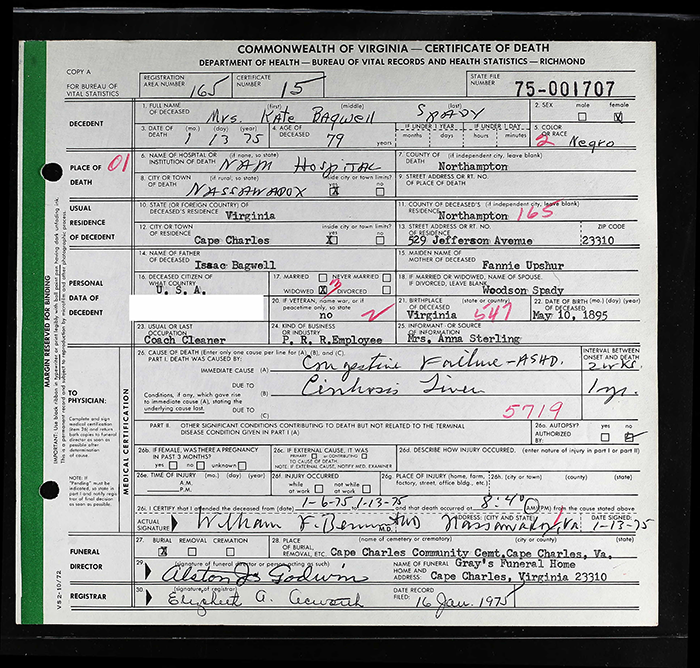 COMMONWEALTH OF VIRGINIA — CERTIFICATE OF DEATH
DEPARTMENT OF HEALTH — BUREAU OF VITAL RECORDS AND HEALTH STATISTICS — RICHMOND
COPY A
FOR BUREAU OF VITAL STATISTICS
REGISTRATION AREA NUMBER 165
CERTIFICATE NUMBER 15
STATE FILE NUMBER 75-001707
DECEDENT
1. FULL NAME OF DECEASED (first) (middle) (last) Mrs. Kate Bagwell Spady
2. SEX male female X
3. DATE OF DEATH (mo.) (day) (year) 1 13 75
4. AGE OF DECEASED 79 years
IF UNDER 1 YEAR months days
IF UNDER 1 DAY hours minutes
5. COLOR OR RACE 2 Negro
PLACE OF DEATH 01
6. NAME OF HOSPITAL OR INSTITUTION OF DEATH (if none, so state) NAM Hospital
7. COUNTY OF DEATH (if independent city, leave blank) Northampton
8. CITY OR TOWN OF DEATH (if rural, so state) inside city or town limits? yes no NASSAWADOX X
9. STREET ADDRESS OR RT. NO. OF PLACE OF DEATH
USUAL RESIDENCE OF DECEDENT
10. STATE (OR FOREIGN COUNTRY) OF DECEASED'S RESIDENCE Virginia
11. COUNTY OF DECEASED'S RESIDENCE (if independent city, leave blank) Northampton 165
12. CITY OR TOWN OF RESIDENCE inside city or town limits? yes no Cape Charles X
13. STREET ADDRESS OR RT. NO. OF RESIDENCE 529 Jefferson Avenue
ZIP CODE 23310
PERSONAL DATA OF DECEDENT
14. NAME OF FATHER OF DECEASED Isaac Bagwell
15. MAIDEN NAME OF MOTHER OF DECEASED Fannie Upshur
16. DECEASED CITIZEN OF WHAT COUNTRY U. S. A.
17. MARRIED NEVER MARRIED WIDOWED X DIVORCED 3
18. IF MARRIED OR WIDOWED, NAME OF SPOUSE. IF DIVORCED, LEAVE BLANK Woodson Spady
20. IF VETERAN, name war, or if peacetime only, so state no
21. BIRTHPLACE OF DECEASED (state or country) Virginia 547
22. DATE OF BIRTH (mo.) (day) (year) OF DECEASED May 10, 1895
23. USUAL OR LAST OCCUPATION Coach Cleaner
24. KIND OF BUSINESS OR INDUSTRY P. R. R. Employee
25. INFORMANT - OR SOURCE OF INFORMATION Mrs. Anna Sterling
TO PHYSICIAN:
Complete and sign medical certification (item 26) and return both copies to funeral director as soon as possible after determination of cause.
NOTE: If "Pending" must be indicated, so state in part I and notify registrar of final decision as soon as possible.
MARGIN RESERVED FOR BINDING
MEDICAL CERTIFICATION
26. CAUSE OF DEATH (Enter only one cause per line for (A), (B), and (C).
PART I. DEATH WAS CAUSED BY:
INTERVAL BETWEEN ONSET AND DEATH
IMMEDIATE CAUSE (A) Congestive Failure - ASHD. 2 wks
Conditions, if any, which gave rise to immediate cause (A), stating the underlying cause last.
DUE TO (B) Cirrhosis Liver 1 yr.
DUE TO (C) 5719
PART II. OTHER SIGNIFICANT CONDITIONS CONTRIBUTING TO DEATH BUT NOT RELATED TO THE TERMINAL DISEASE CONDITION GIVEN IN PART I (A)
26a. AUTOPSY? yes no AUTHORIZED BY:
26b. IF FEMALE, WAS THERE A PREGNANCY IN PAST 3 MONTHS? yes no unknown
26c. IF EXTERNAL CAUSE, IT WAS PRIMARY or CONTRIBUTING TO CAUSE OF DEATH
NOTE: IF EXTERNAL CAUSE, NOTIFY MED. EXAMINER
26d. DESCRIBE HOW INJURY OCCURRED. (enter nature of injury in part I or part II)
26e. TIME OF INJURY (mo.) (day) (year) A.M. P.M.
26f. INJURY OCCURRED while at work not while at work
26g. PLACE OF INJURY (home, farm, factory, street, office bldg., etc.)
26h. (city or town) (county) (state)
26i. I CERTIFY that I attended the deceased from (date) 1-6-75 1-13-75 and that death occurred at 8:40 (AM) (PM) from the cause stated above
ACTUAL SIGNATURE William F. Bernart M.D.
ADDRESS: (CITY AND STATE) Nassawadox, Va
DATE SIGNED: 1-13-75
FUNERAL DIRECTOR
27. BURIAL REMOVAL CREMATION X
28. PLACE OF BURIAL, REMOVAL, ETC. (name of cemetery or crematory) (city or county) (state) Cape Charles Community Cemt. Cape Charles, Va.
29. (signature of funeral director or person acting as such) Alston J. Godwin
NAME OF FUNERAL HOME AND ADDRESS: Gray's Funeral Home
Cape Charles, Virginia 23310
REGISTRAR
30. (signature of registrar) Elizabeth A.
DATE RECORD FILED: 16 Jan. 1975
VS 2-10/72